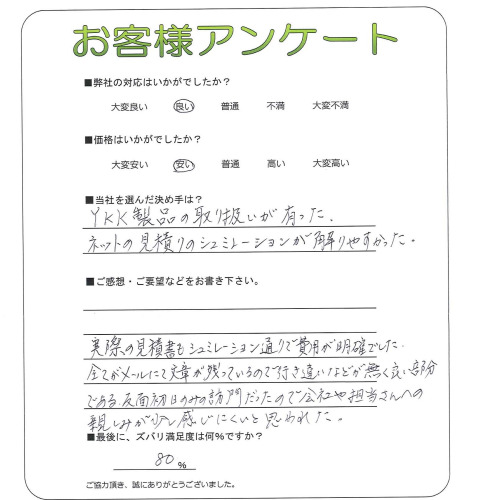 お客様アンケート
■弊社の対応はいかがでしたか？
大変良い 良い 普通 不満 大変不満
■価格はいかがでしたか？
大変安い 安い 普通 高い 大変高い
■当社を選んだ決め手は？
YKK製品の取り扱いが有った。
ネットの見積りのシュミレーションが解りやすかった。
■ご感想・ご要望などをお書き下さい。
実際の見積書もシュミレーション通りで費用が明確でした.
全てがメールにて文章が残っているので行き違いなどが無く良い部分
である.反面初日のみの訪問だったので会社や担当さんへの
親しみが少し感じにくいと思われた。
■最後に、ズバリ満足度は何%ですか？
80 %
ご協力頂き、誠にありがとうございました。